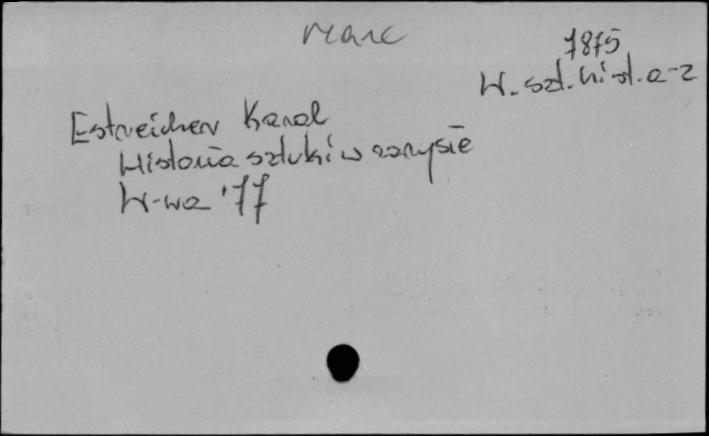 Marc
7875
W. szt. hist. a-z
Estreicher Karol
Historia sztuki w zarysie
W-wa '77